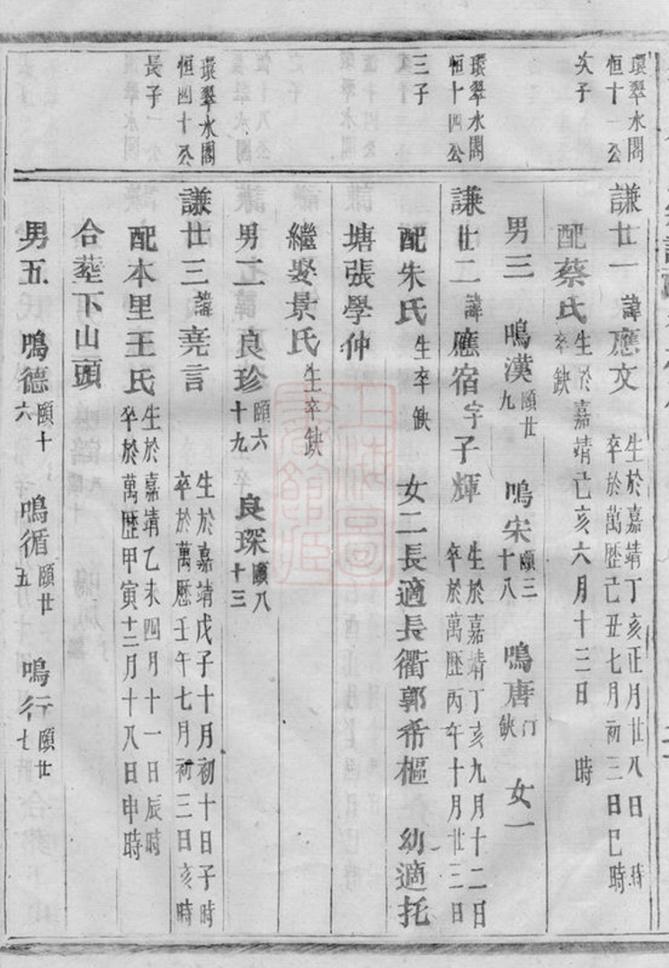 環翠水閣
恒十一公
次子
謙廿一諱應文
生於嘉靖丁亥正月廿八日 時
卒於萬歷己丑七月初三日巳時
配蔡氏
生於嘉靖己亥六月十三日 時
卒缺
男三 鳴漢頤廿九 鳴宋頤三十八 鳴唐行缺 女一
環翠水閣
恒十四公
三子
謙廿二諱應宿字子輝
生於嘉靖丁亥九月十二日
卒於萬歷丙午十月廿三日
配朱氏生卒缺 女二長適長衢郭希樞 幼適托
塘張學仲
繼娶景氏生卒缺
男二 良珍頤六十九 良琛頤八十三
環翠水閣
恒四十公
長子
謙廿三諱堯言
生於嘉靖戊子十月初十日子時
卒於萬歷壬午七月初三日亥時
配本里王氏
生於嘉靖乙未四月十一日辰時
卒於萬歷甲寅十二月十八日申時
合塟下山頭
男五 鳴德頤十六 鳴循頤廿五 鳴行頤廿七